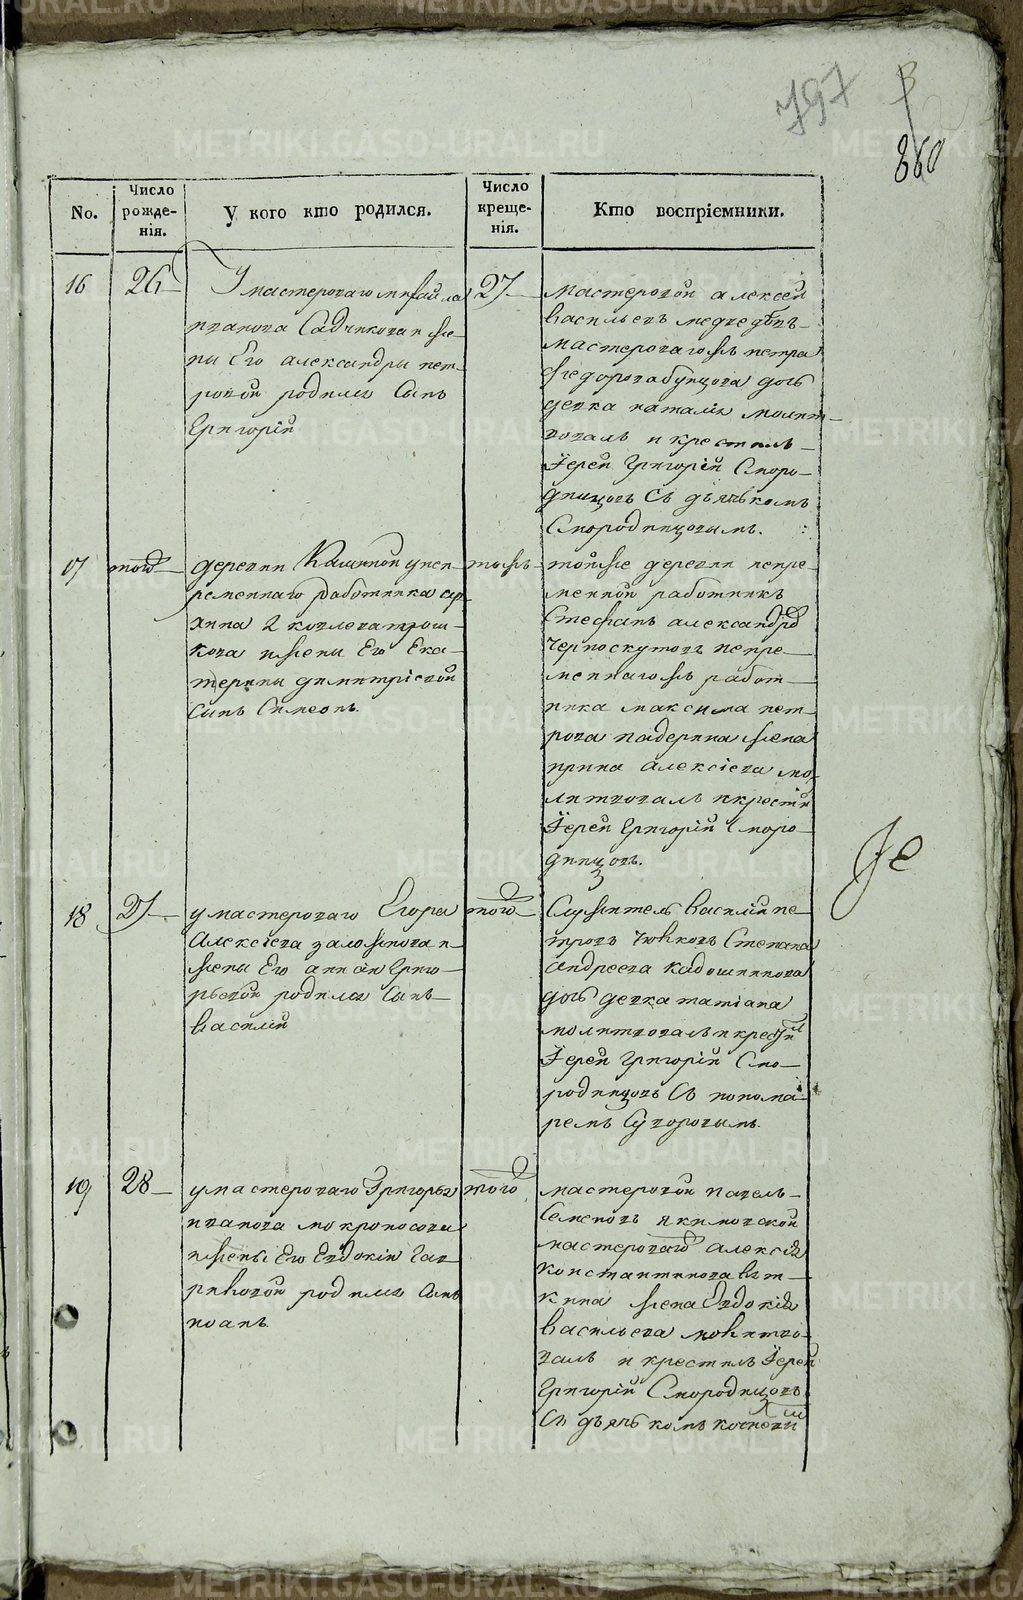 797
860
No.
Число рожде-
нія.
У кого кто родился.
Число креще-
нія.
Кто воспріемники.
16
26
У мастероваго михайла
иванова Садчикова и же-
ны Его александры пет-
ровой родился Сынъ
Григорій
27
мастеровой алексей
васильевъ медведевъ
мастероваго жъ петра
федорова бунцова дочь
девка наталія молит-
вовалъ и крестилъ
Іерей Григорій Сморо-
динцовъ Съ дьячкомъ
Смородинцовымъ.
17
того
деревни Калиной у неп-
ременнаго работника ар-
хипа
кова и жены Его Ека-
терины димитріевой
Сынъ Симеонъ.
тойже деревни непре-
менной работникъ
Стефанъ александро
Черноскутовъ непре-
меннагожъ работ-
ника максима пет-
рова падерина жена
ирина алексіева мо-
литвовалъ и крести
Іерей Григорій Сморо-
динцовъ.
18
27
у мастероваго Егора
Алексіева заложнова и
жены Его анны Григо-
рьевой родился Сынъ
Василій
того
Служитель Василій пе-
тровъ Степана
андреева кадошникова
дочь девка татіана
молитвовалъ и крестил
Іерей Григорій Смо-
родинцовъ Съ понома-
ремъ Суворовымъ.
19
28
у мастероваго Григорья
иванова мокроносова
и жены Его Евдокіи Гав-
риловой родился Сынъ
иоанъ.
того
мастеровой павелъ
Семеновъ якимовской
мастероваго алексія
константинова вят-
кина жена Овдокія
Васильева молитво-
валъ и крестилъ Іерей
Григорій Смородинцовъ
Съ дьячкомъ
METRIKI.GASO-URAL.RU